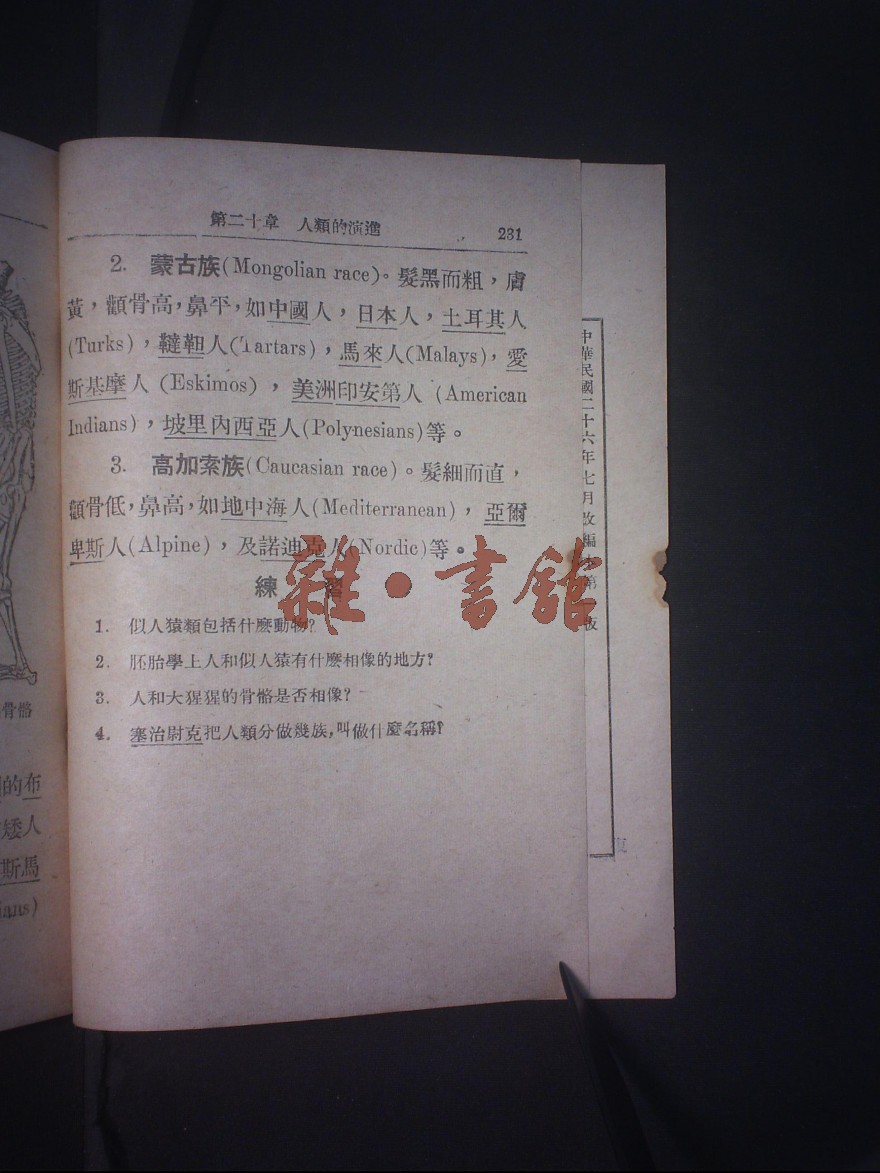 第二十章　人類的演進　231
2. 蒙古族(Mongolian race)。髮黑而粗，膚
黃，顴骨高，鼻平，如中國人，日本人，土耳其人
(Turks)，韃靼人(Tartars)，馬來人(Malays)，愛
斯基摩人(Eskimos)，美洲印安第人(American
Indians)，坡里內西亞人(Polynesians)等。
3. 高加索族(Caucasian race)。髮細而直，
顴骨低，鼻高，如地中海人(Mediterranean)，亞爾
卑斯人(Alpine)，及諾迪克人(Nordic)等。
練習
1. 似人猿類包括什麼動物？
2. 胚胎學上人和似人猿有什麼相像的地方？
3. 人和大猩猩的骨骼是否相像？
4. 塞治尉克把人類分做幾族，叫做什麼名稱？
雜·書館
骨骼
的布
矮人
斯馬
ians)
中華民國二十六年七月改編本第